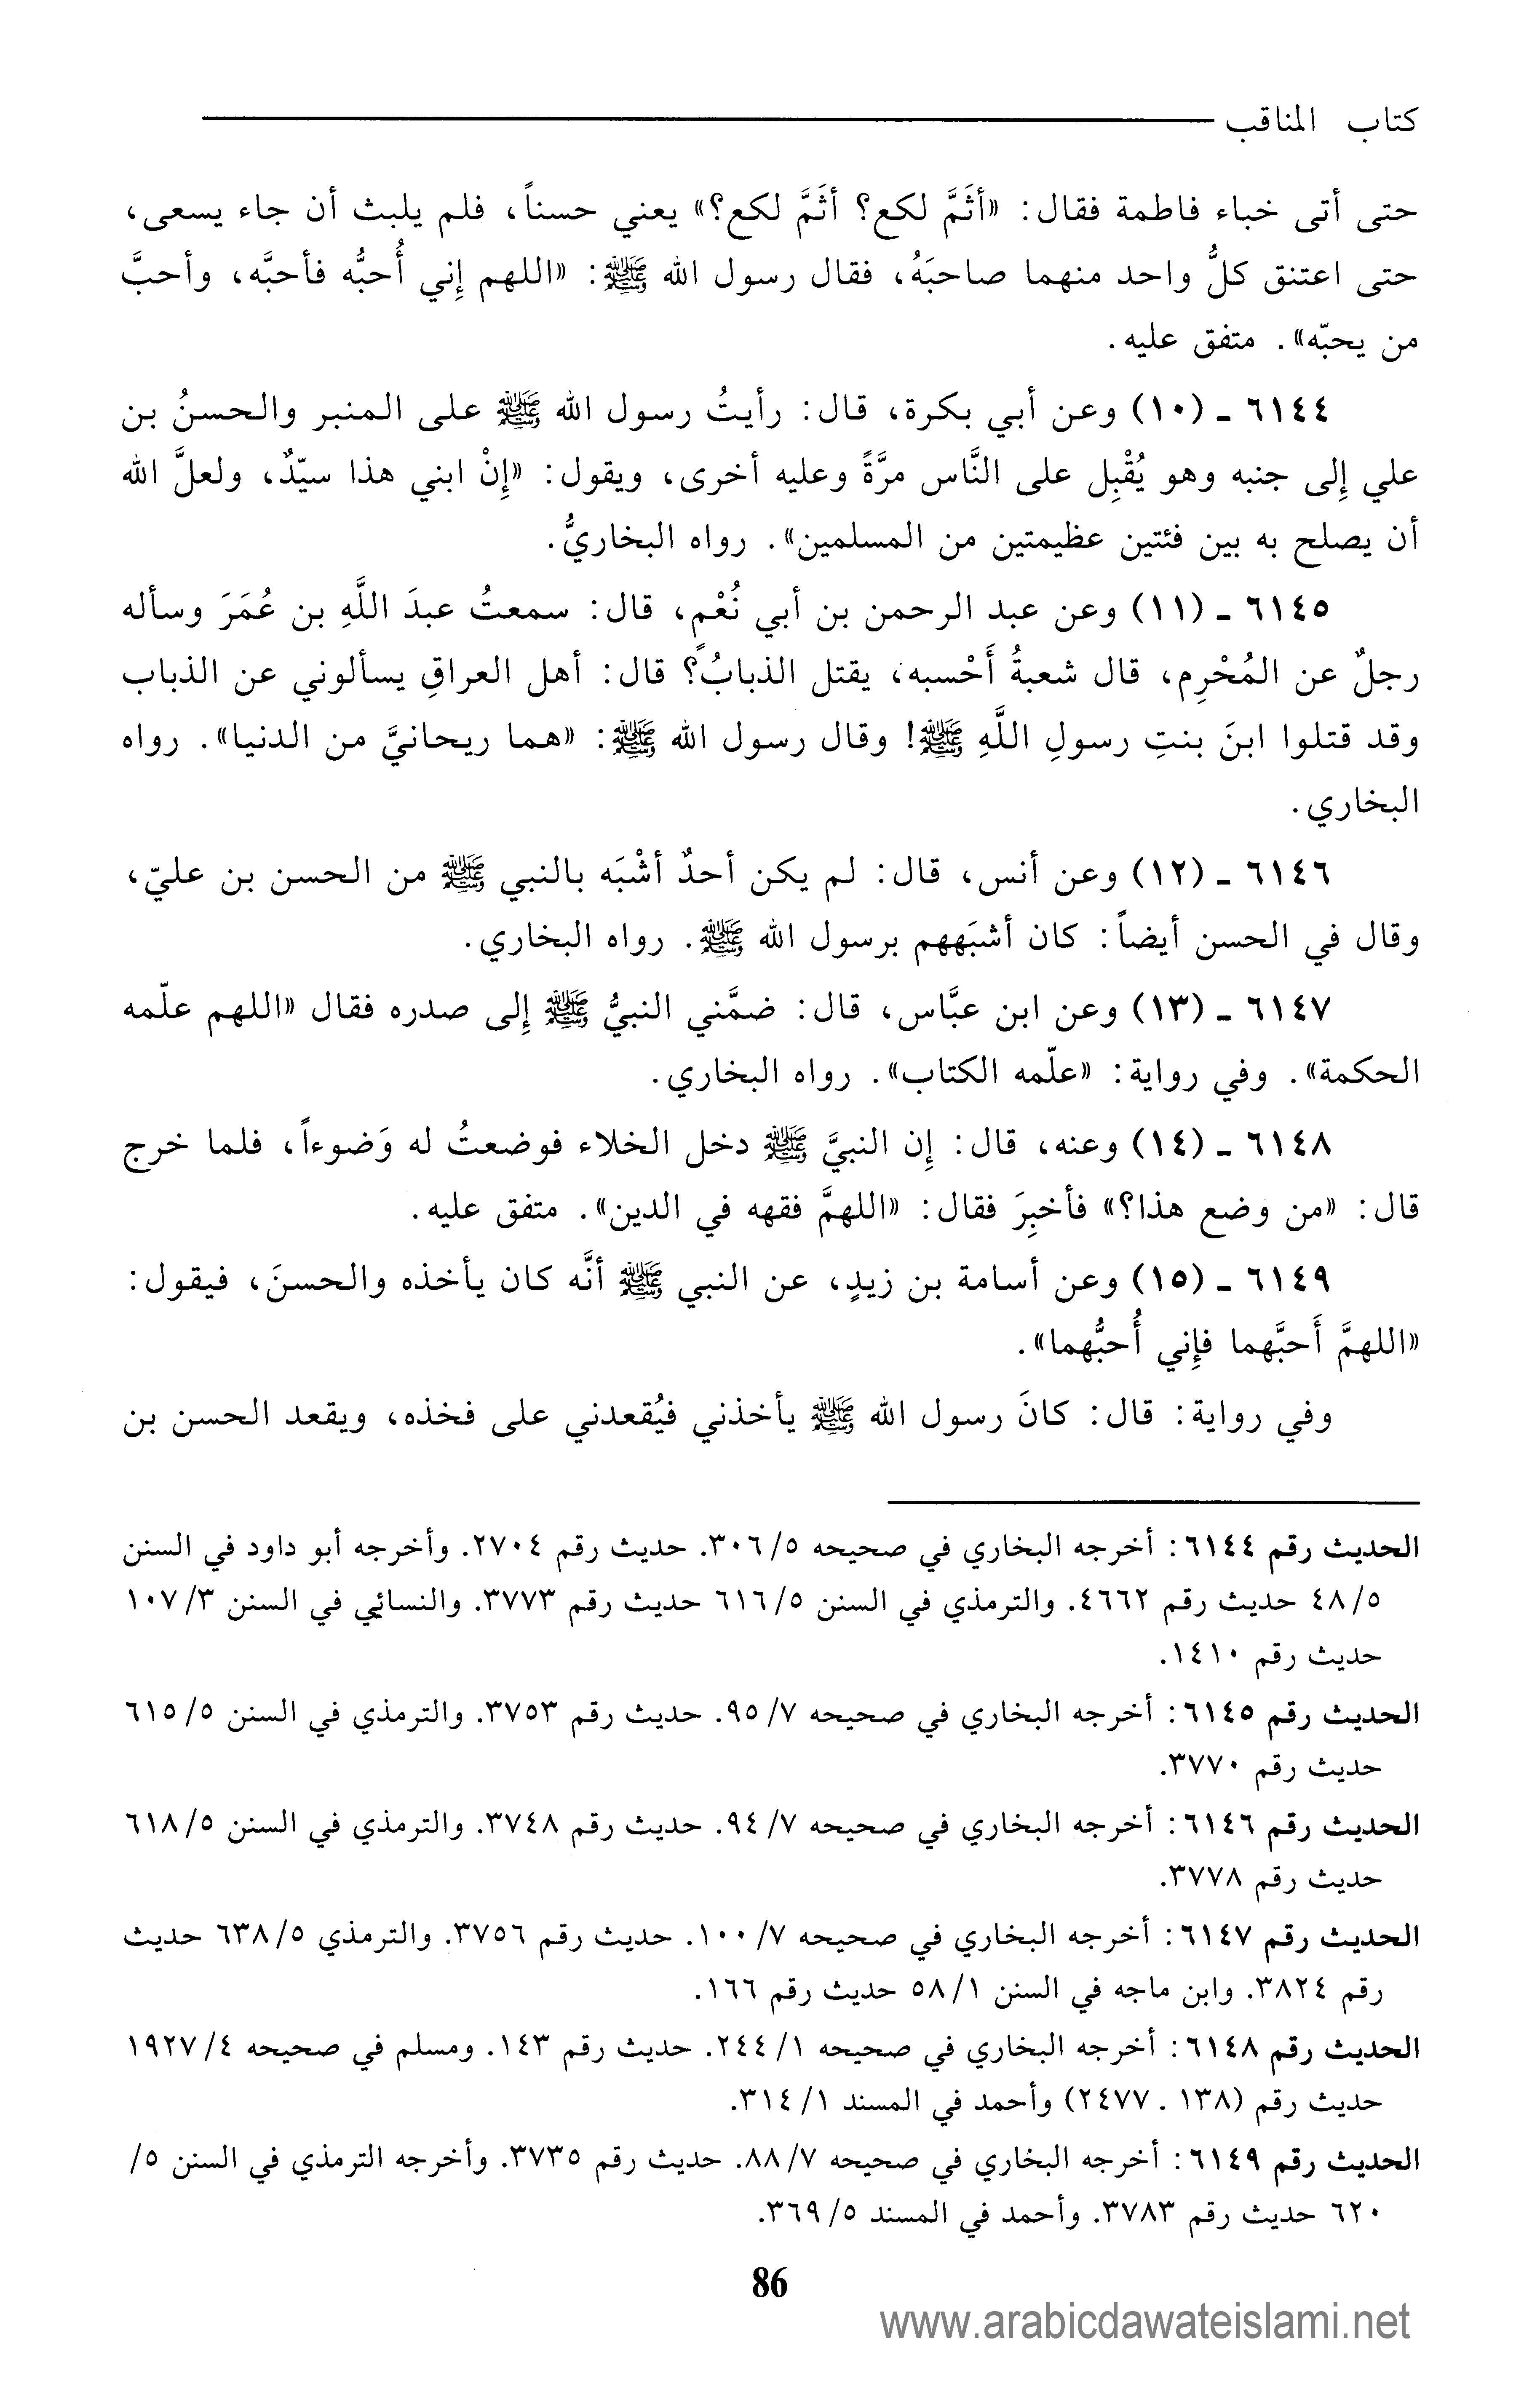 كتاب المناقب
حتى أتى خباء فاطمة فقال: «أثَمَّ لكع؟ أثَمَّ لكع؟» يعني حسناً، فلم يلبث أن جاء يسعى،
حتى اعتنق كلُّ واحد منهما صاحبَهُ، فقال رسول الله ﷺ: «اللهم إِني أُحبُّه فأحبَّه، وأحبَّ
من يحبّه». متفق عليه.
٦١٤٤ ـ (١٠) وعن أبي بكرة، قال: رأيتُ رسول الله ﷺ على المنبر والحسنُ بن
علي إِلى جنبه وهو يُقْبِل على النَّاس مرَّةً وعليه أخرى، ويقول: «إِنْ ابني هذا سيّدٌ، ولعلَّ الله
أن يصلح به بين فئتين عظيمتين من المسلمين». رواه البخاريُّ.
٦١٤٥ ـ (١١) وعن عبد الرحمن بن أبي نُعْمٍ، قال: سمعتُ عبدَ اللَّهِ بن عُمَرَ وسأله
رجلٌ عن المُحْرِم، قال شعبةُ أَحْسبه، يقتل الذبابُ؟ قال: أهل العراقِ يسألوني عن الذباب
وقد قتلوا ابنَ بنتِ رسولِ اللَّهِ ﷺ! وقال رسول الله ﷺ: «هما ريحانيَّ من الدنيا». رواه
البخاري.
٦١٤٦ ـ (١٢) وعن أنس، قال: لم يكن أحدٌ أشْبَه بالنبي ﷺ من الحسن بن عليّ،
وقال في الحسن أيضاً: كان أشبَههم برسول الله ﷺ. رواه البخاري.
٦١٤٧ ـ (١٣) وعن ابن عبَّاس، قال: ضمَّني النبيُّ ﷺ إِلى صدره فقال «اللهم علّمه
الحكمة». وفي رواية: «علّمه الكتاب». رواه البخاري.
٦١٤٨ ـ (١٤) وعنه، قال: إِن النبيَّ ﷺ دخل الخلاء فوضعتُ له وَضوءاً، فلما خرج
قال: «من وضع هذا؟» فأخبِرَ فقال: «اللهمَّ فقهه في الدين». متفق عليه.
٦١٤٩ ـ (١٥) وعن أسامة بن زيدٍ، عن النبي ﷺ أنَّه كان يأخذه والحسنَ، فيقول:
«اللهمَّ أَحبَّهما فإِني أُحبُّهما».
وفي رواية: قال: كانَ رسول الله ﷺ يأخذني فيُقعدني على فخذه، ويقعد الحسن بن
الحديث رقم ٦١٤٤: أخرجه البخاري في صحيحه ٥/ ٣٠٦. حديث رقم ٢٧٠٤. وأخرجه أبو داود في السنن
٥/ ٤٨ حديث رقم ٤٦٦٢. والترمذي في السنن ٥/ ٦١٦ حديث رقم ٣٧٧٣. والنسائي في السنن ٣/ ١٠٧
حديث رقم ١٤١٠.
الحديث رقم ٦١٤٥: أخرجه البخاري في صحيحه ٧/ ٩٥. حديث رقم ٣٧٥٣. والترمذي في السنن ٥/ ٦١٥
حديث رقم ٣٧٧٠.
الحديث رقم ٦١٤٦: أخرجه البخاري في صحيحه ٧/ ٩٤. حديث رقم ٣٧٤٨. والترمذي في السنن ٥/ ٦١٨
حديث رقم ٣٧٧٨.
الحديث رقم ٦١٤٧: أخرجه البخاري في صحيحه ٧/ ١٠٠. حديث رقم ٣٧٥٦. والترمذي ٥/ ٦٣٨ حديث
رقم ٣٨٢٤. وابن ماجه في السنن ١/ ٥٨ حديث رقم ١٦٦.
الحديث رقم ٦١٤٨: أخرجه البخاري في صحيحه ١/ ٢٤٤. حديث رقم ١٤٣. ومسلم في صحيحه ٤/ ١٩٢٧
حديث رقم (١٣٨ ـ ٢٤٧٧) وأحمد في المسند ١/ ٣١٤.
الحديث رقم ٦١٤٩: أخرجه البخاري في صحيحه ٧/ ٨٨. حديث رقم ٣٧٣٥. وأخرجه الترمذي في السنن ٥/
٦٢٠ حديث رقم ٣٧٨٣. وأحمد في المسند ٥/ ٣٦٩.
86
www.arabicdawateislami.net